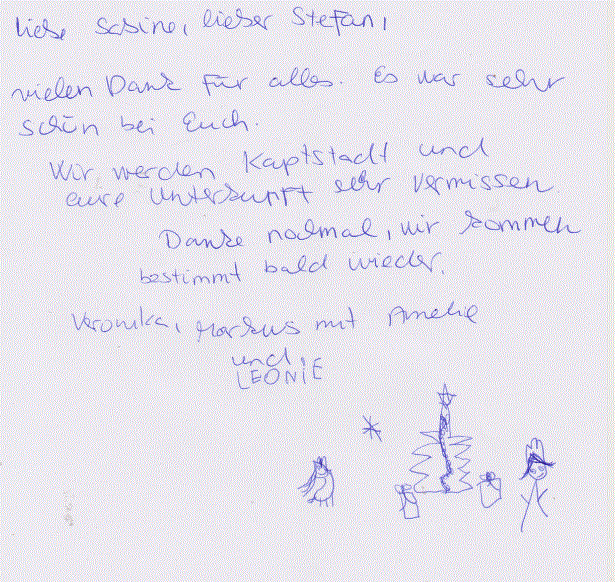 Liebe Sabine, lieber Stefan,
vielen Dank für alles. Es war sehr
schön bei Euch.
Wir werden Kaptstadt und
eure Unterkunft sehr vermissen
Danke nochmal, wir kommen
bestimmt bald wieder.
Veronika, Markus mit Amelie
und
LEONIE